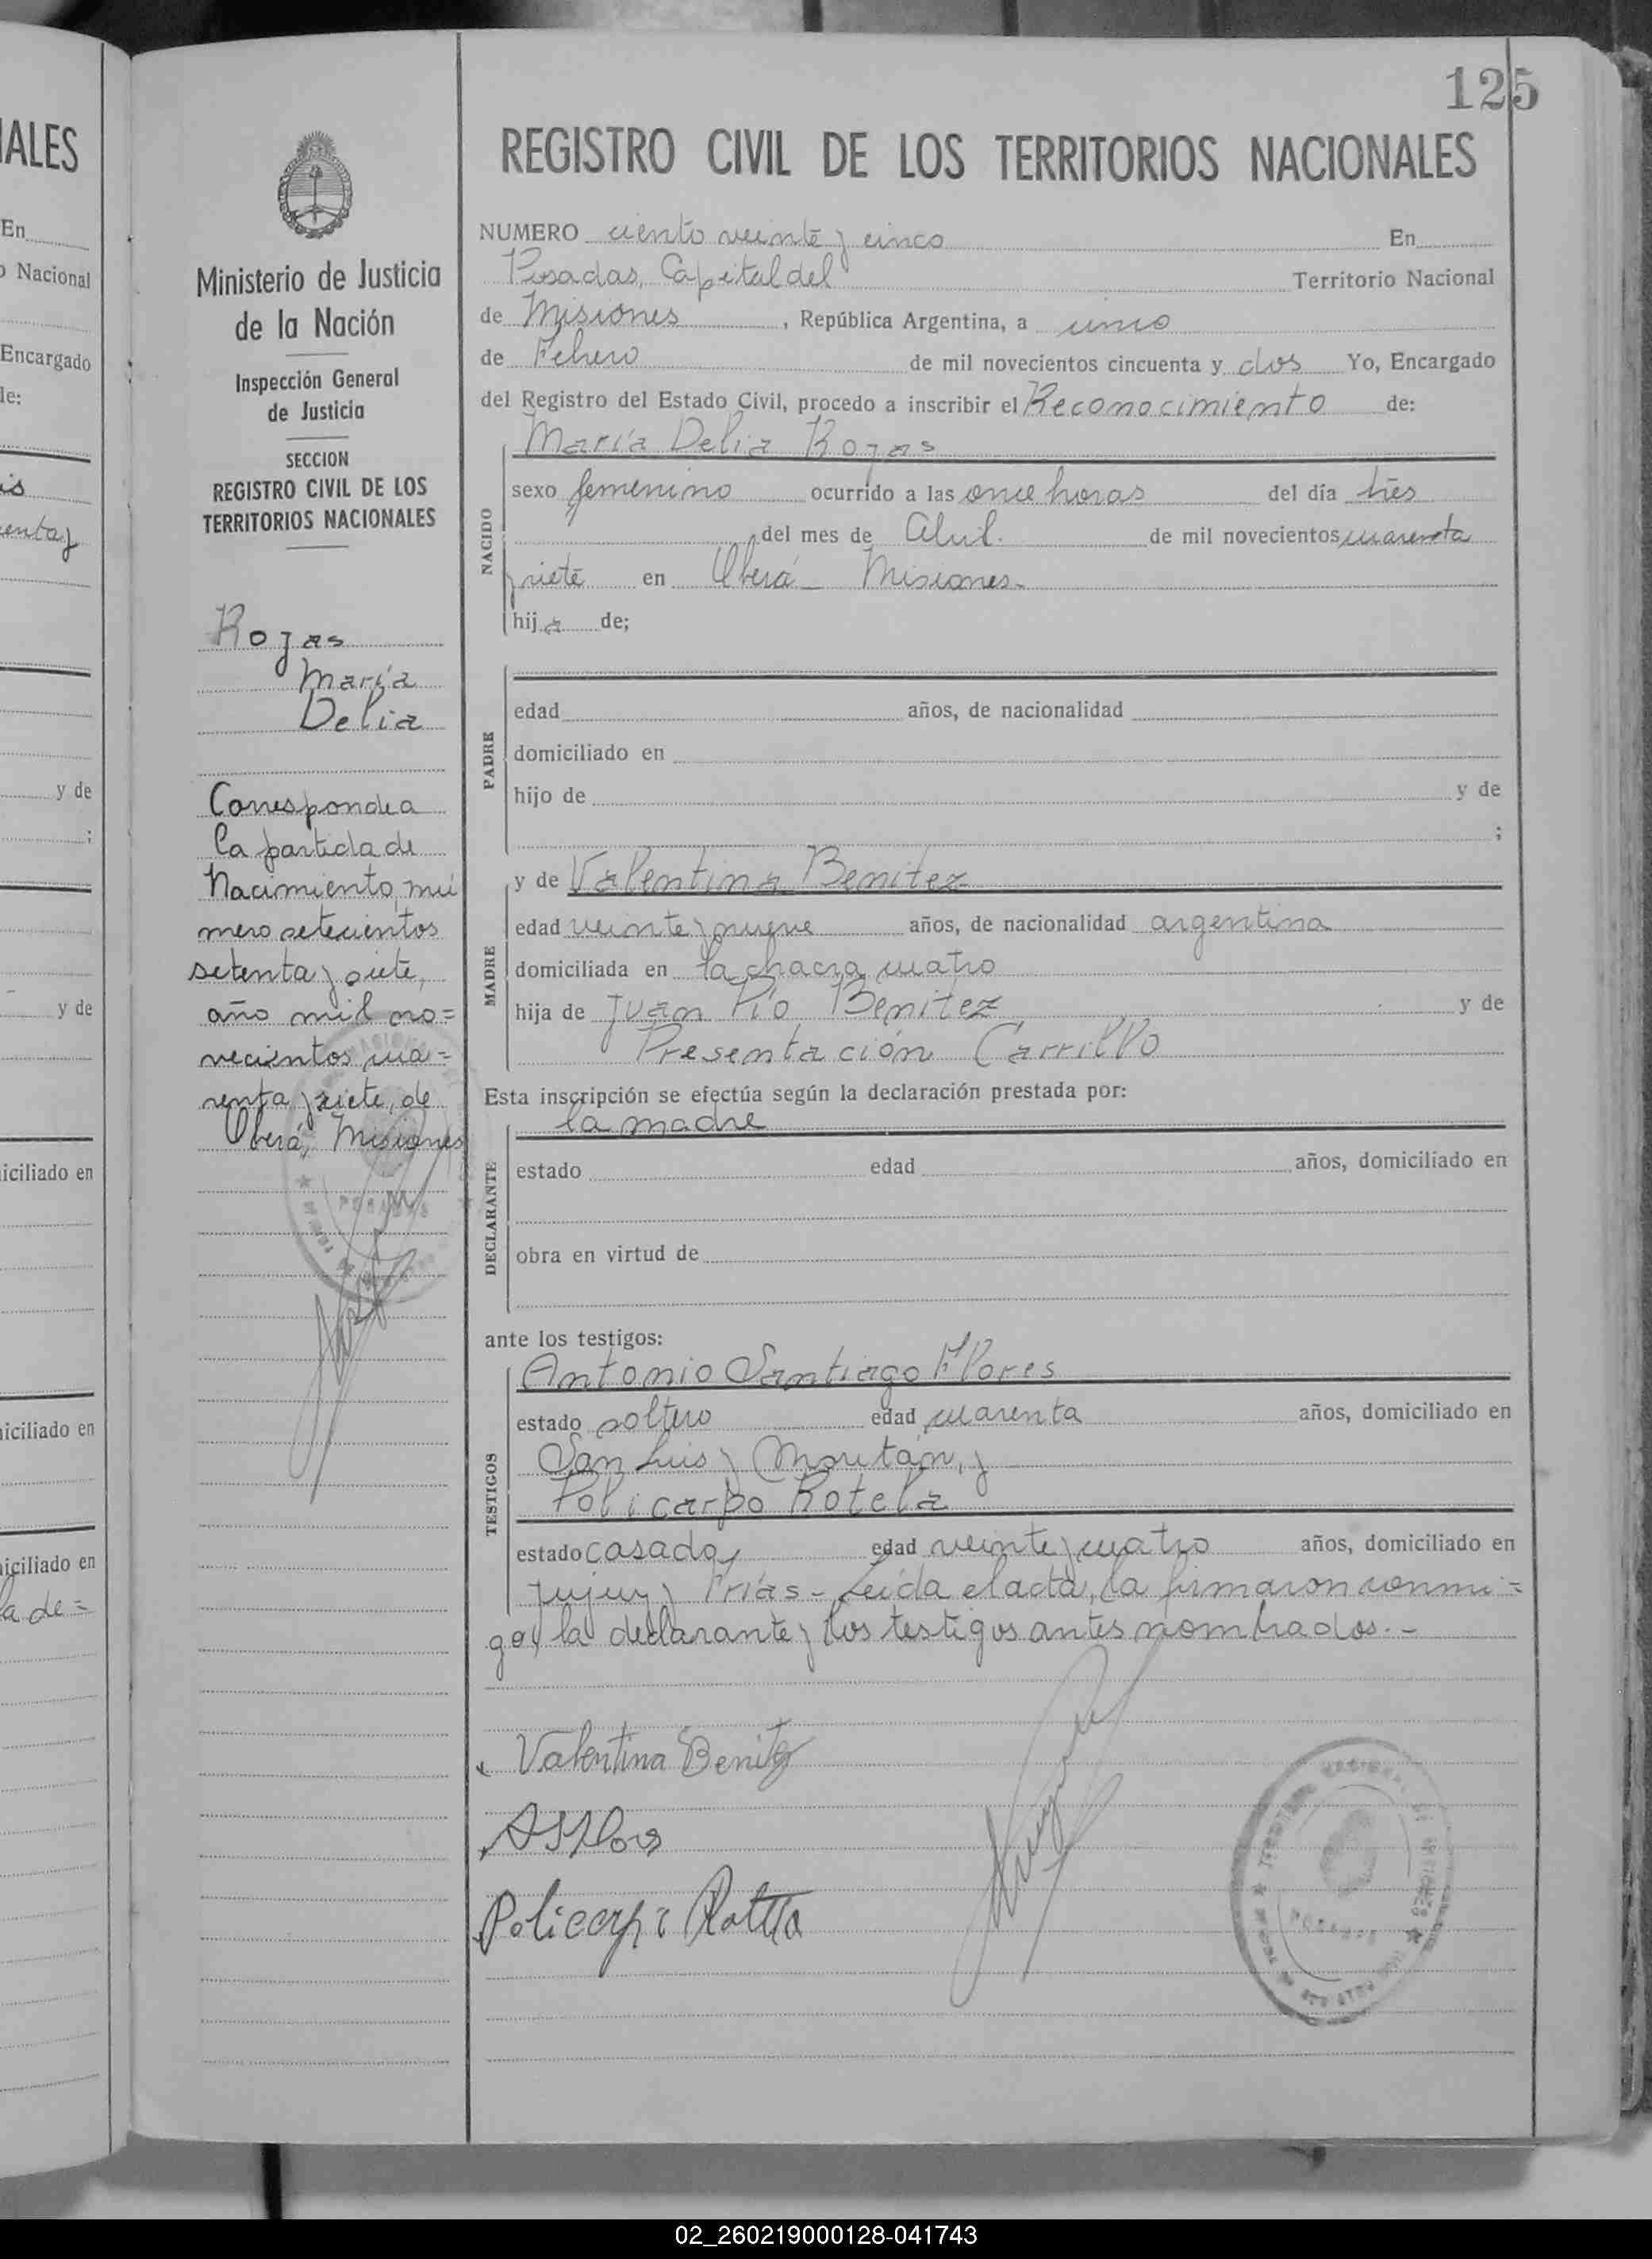 125
REGISTRO CIVIL DE LOS TERRITORIOS NACIONALES
Ministerio de Justicia
de la Nación
Inspección General
de Justicia
SECCION
REGISTRO CIVIL DE LOS
TERRITORIOS NACIONALES
Rojas
María
Delia
Corresponde a
la partida de
Nacimiento, nú
mero setecientos
setenta y siete,
año mil no=
vecientos cua=
renta y siete, de
Oberá, Misiones
NUMERO ciento veinte y cinco En
Posadas, Capital del Territorio Nacional
de Misiones, República Argentina, a uno
de Febrero de mil novecientos cincuenta y dos Yo, Encargado
del Registro del Estado Civil, procedo a inscribir el Reconocimiento de:
María Delia Rojas
NACIDO
sexo femenino ocurrido a las once horas del día tres
del mes de Abril. de mil novecientos cuarenta
y siete en Oberá - Misiones-
hija de;
PADRE
edad años, de nacionalidad
domiciliado en
hijo de y de
;
MADRE
y de Valentina Benitez
edad veinte y nueve años, de nacionalidad argentina
domiciliada en la chacra cuatro
hija de Juan Pío Benitez y de
Presentación Carrillo
Esta inscripción se efectúa según la declaración prestada por:
la madre
DECLARANTE
estado edad años, domiciliado en
obra en virtud de
ante los testigos:
TESTIGOS
Antonio Santiago Flores
estado soltero edad cuarenta años, domiciliado en
San Luis y y
Policarpo Rotela
estado casado, edad veinte y cuatro años, domiciliado en
Jujuy y Frías - Leída el acta, la firmaron conmi=
go, la declarante y los testigos antes nombrados.-
Valentina Benitez
ASFlores
Policarpo Rotela
POSADAS
ALES
En
o Nacional
Encargado
de:
enta y
y de
;
y de
iciliado en
niciliado en
niciliado en
a de=
02_260219000128-041743